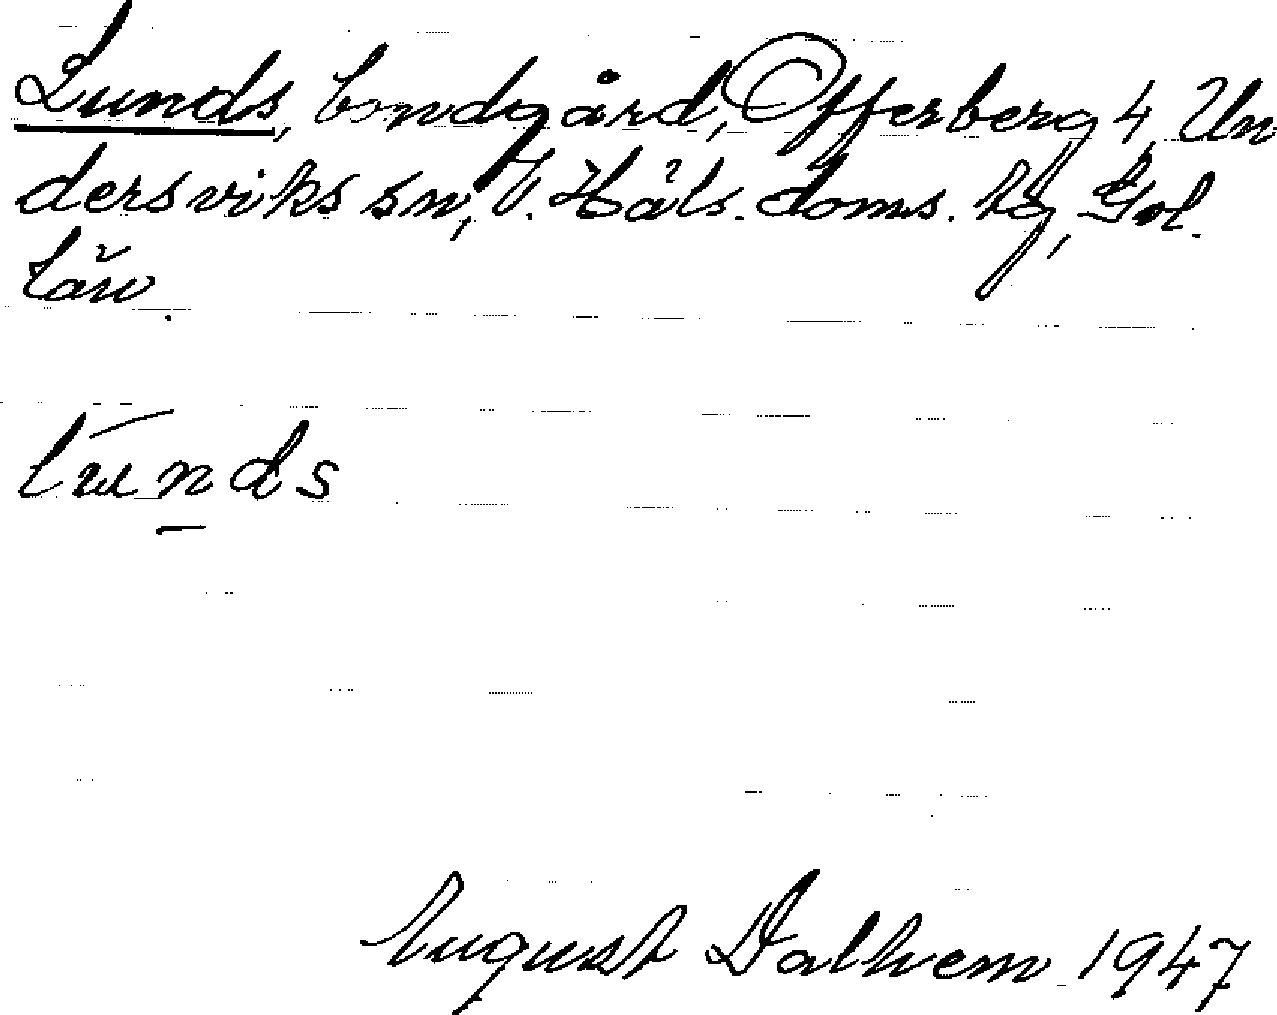 Lunds, bondgård, Offerberg 4, Un
dersviks sn, V. Häls. doms. hg, Gvl.
län.
lūnds
August Dalhem 1947